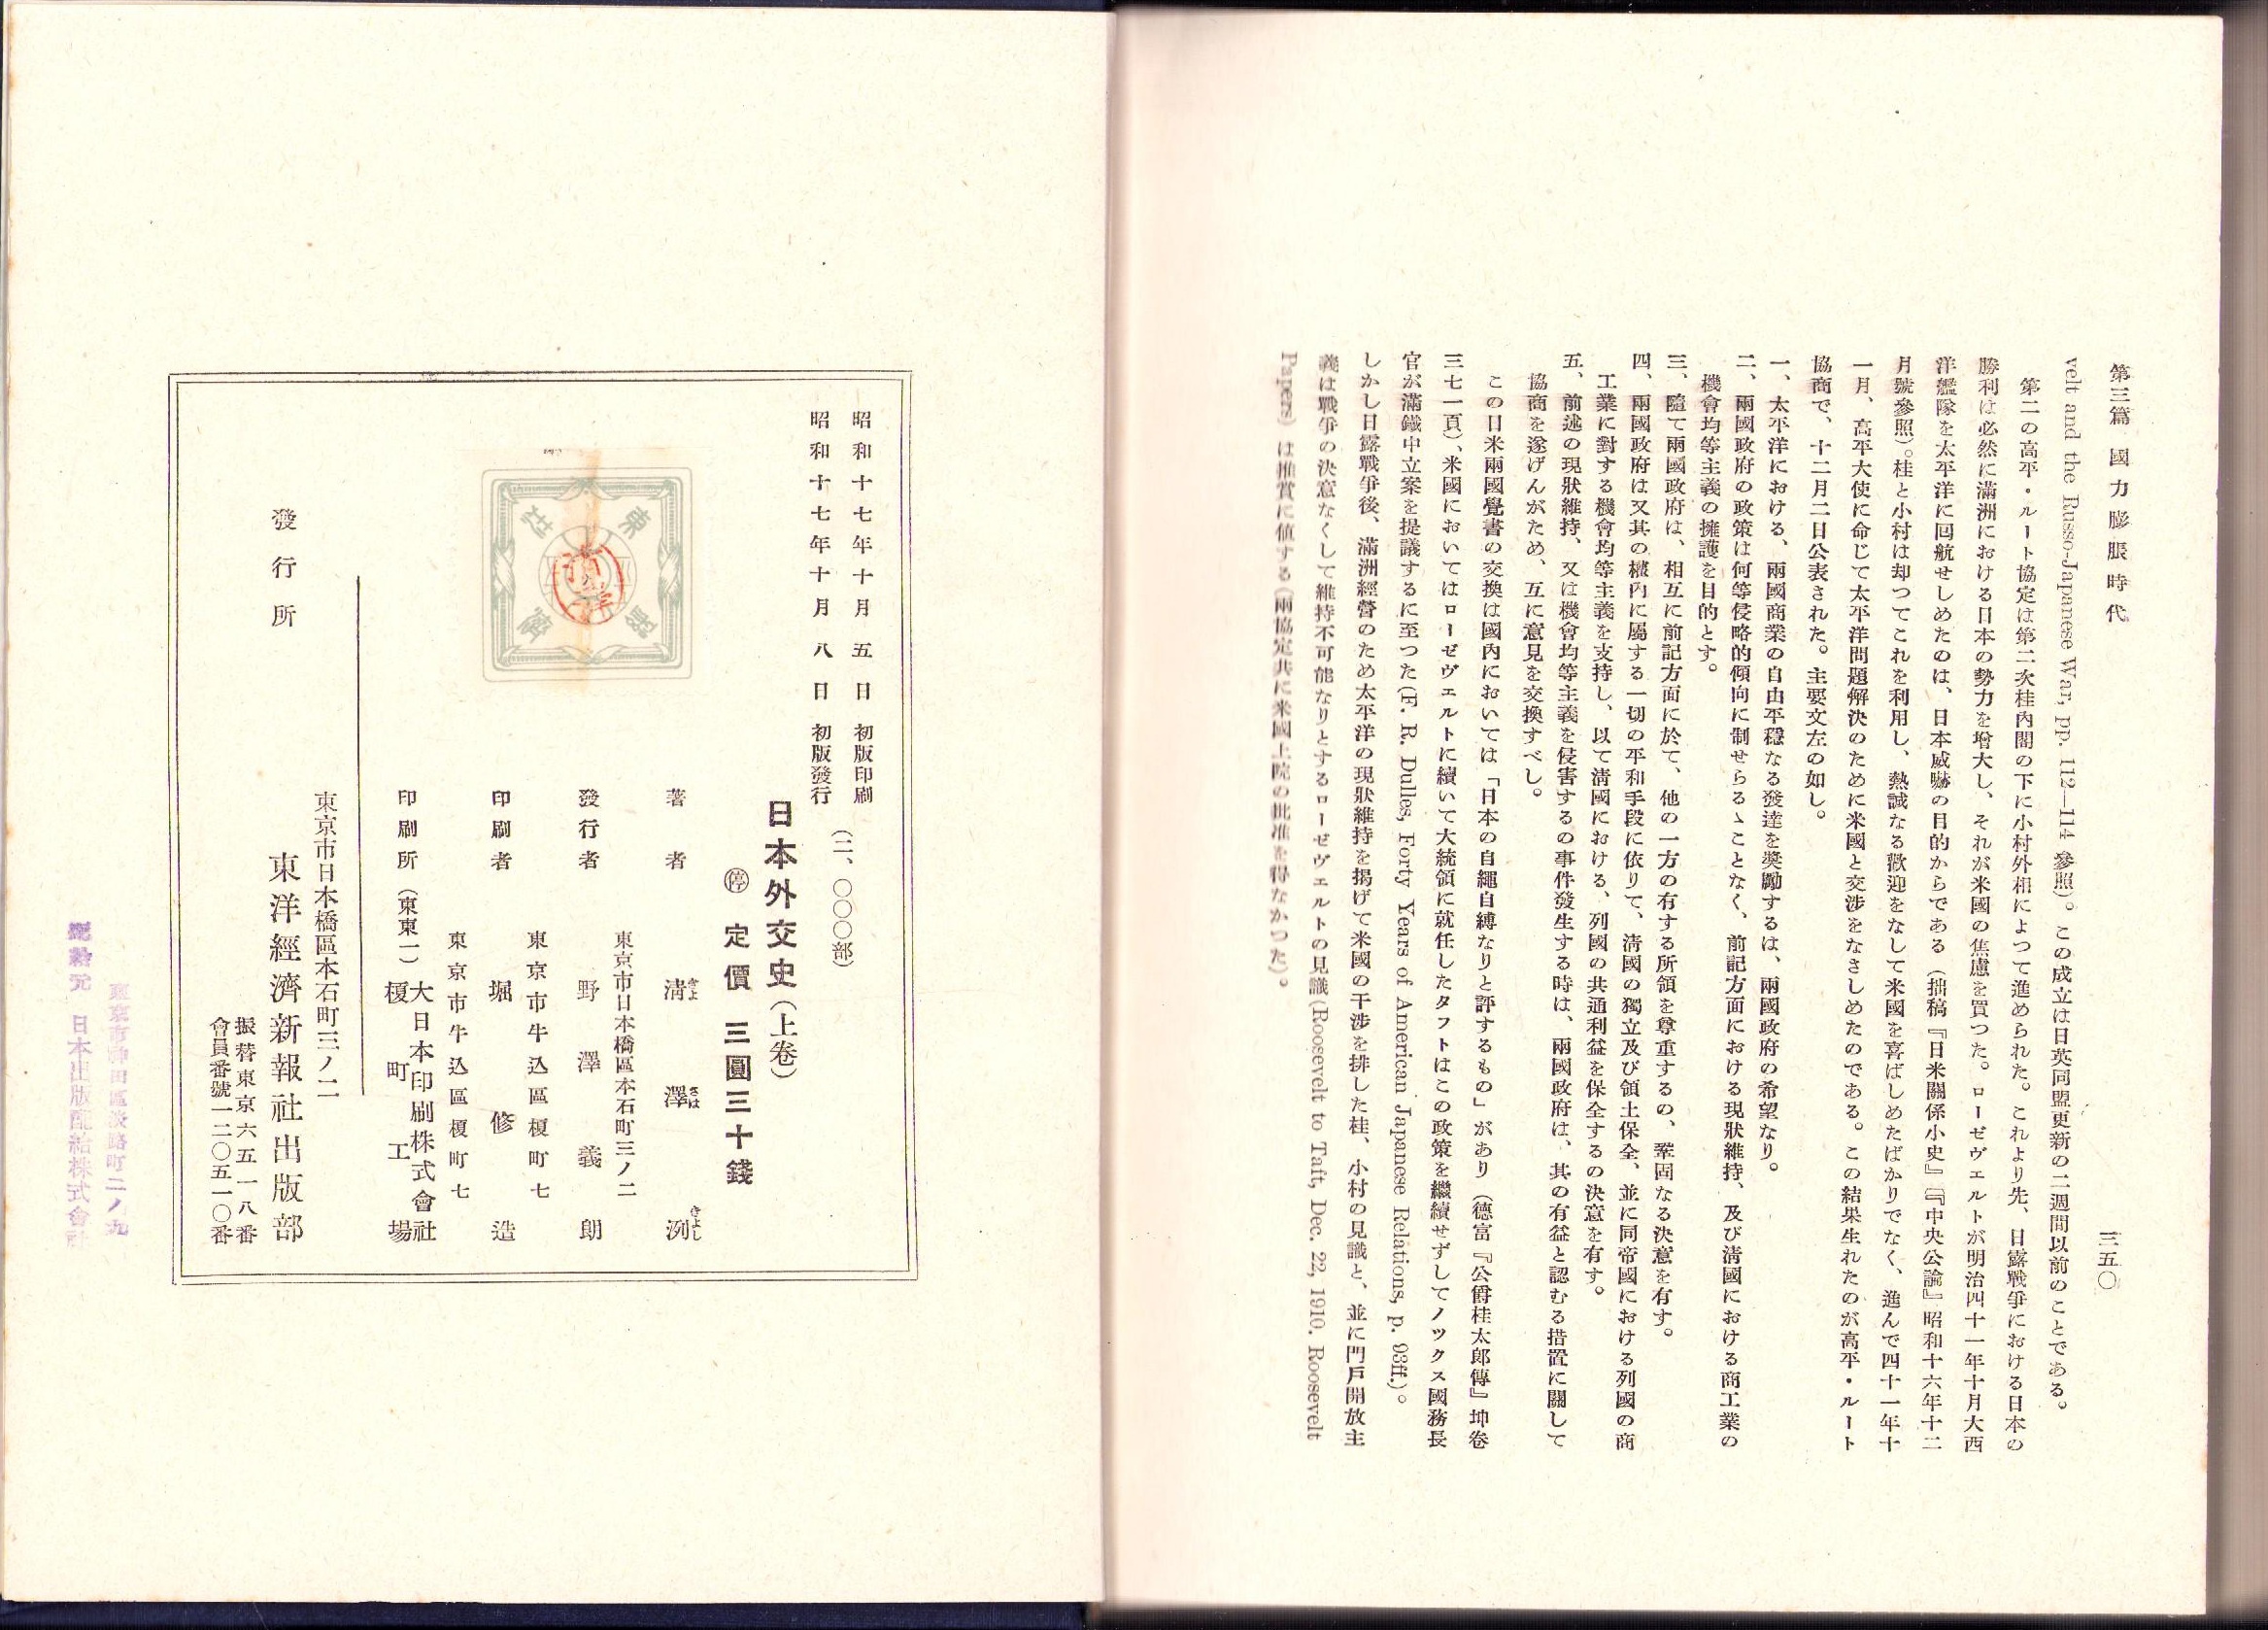 第三篇 國力膨脹時代
三五〇
velt and the Russo-Japanese War, pp. 112―114 參照)。この成立は日英同盟更新の二週間以前のことである。
第二の高平・ルート協定は第二次桂內閣の下に小村外相によつて進められた。これより先、日露戰爭における日本の
勝利は必然に滿洲における日本の勢力を增大し、それが米國の焦慮を買つた。ローゼヴェルトが明治四十一年十月大西
洋艦隊を太平洋に囘航せしめたのは、日本威嚇の目的からである(拙稿『日米關係小史』『中央公論』昭和十六年十二
月號參照)。桂と小村は却つてこれを利用し、熱誠なる歡迎をなして米國を喜ばしめたばかりでなく、進んで四十一年十
一月、高平大使に命じて太平洋問題解決のために米國と交涉をなさしめたのである。この結果生れたのが高平・ルート
協商で、十二月二日公表された。主要文左の如し。
一、太平洋における、兩國商業の自由平穩なる發達を奬勵するは、兩國政府の希望なり。
二、兩國政府の政策は何等侵略的傾向に制せらるゝことなく、前記方面における現狀維持、及び淸國における商工業の
機會均等主義の擁護を目的とす。
三、隨て兩國政府は、相互に前記方面に於て、他の一方の有する所領を尊重するの、鞏固なる決意を有す。
四、兩國政府は又其の權內に屬する一切の平和手段に依りて、淸國の獨立及び領土保全、並に同帝國における列國の商
工業に對する機會均等主義を支持し、以て淸國における、列國の共通利益を保全するの決意を有す。
五、前述の現狀維持、又は機會均等主義を侵害するの事件發生する時は、兩國政府は、其の有益と認むる措置に關して
協商を遂げんがため、互に意見を交換すべし。
この日米兩國覺書の交換は國內においては「日本の自繩自縛なりと評するもの」があり(德富『公爵桂太郎傳』坤卷
三七一頁)、米國においてはローゼヴェルトに續いて大統領に就任したタフトはこの政策を繼續せずしてノックス國務長
官が滿鐵中立案を提議するに至つた(F. R. Dulles, Forty Years of American Japanese Relations, p. 93ff.)。
しかし日露戰爭後、滿洲經營のため太平洋の現狀維持を揭げて米國の干涉を排した桂、小村の見識と、並に門戶開放主
義は戰爭の決意なくして維持不可能なりとするローゼヴェルトの見識(Roosevelt to Taft, Dec. 22, 1910. Roosevelt
Papers) は推賞に値する(兩協定共に米國上院の批准を得なかつた)。
昭和十七年十月五日 初版印刷
昭和十七年十月八日 初版發行
(二、〇〇〇部)
日本外交史(上卷)
㊡ 定價 三圓三十錢
東洋經濟社
著者 淸澤洌
きよ さは きよし
東京市日本橋區本石町三ノ二
發行者 野澤義朗
東京市牛込區榎町七
印刷者 堀修造
東京市牛込區榎町七
大日本印刷株式會社
印刷所(東東一) 榎町工場
東京市日本橋區本石町三ノ二
發行所 東洋經濟新報社出版部
振替東京六五一八番
會員番號一二〇五一〇番
東京市神田區淡路町二ノ九
配給元 日本出版配給株式會社